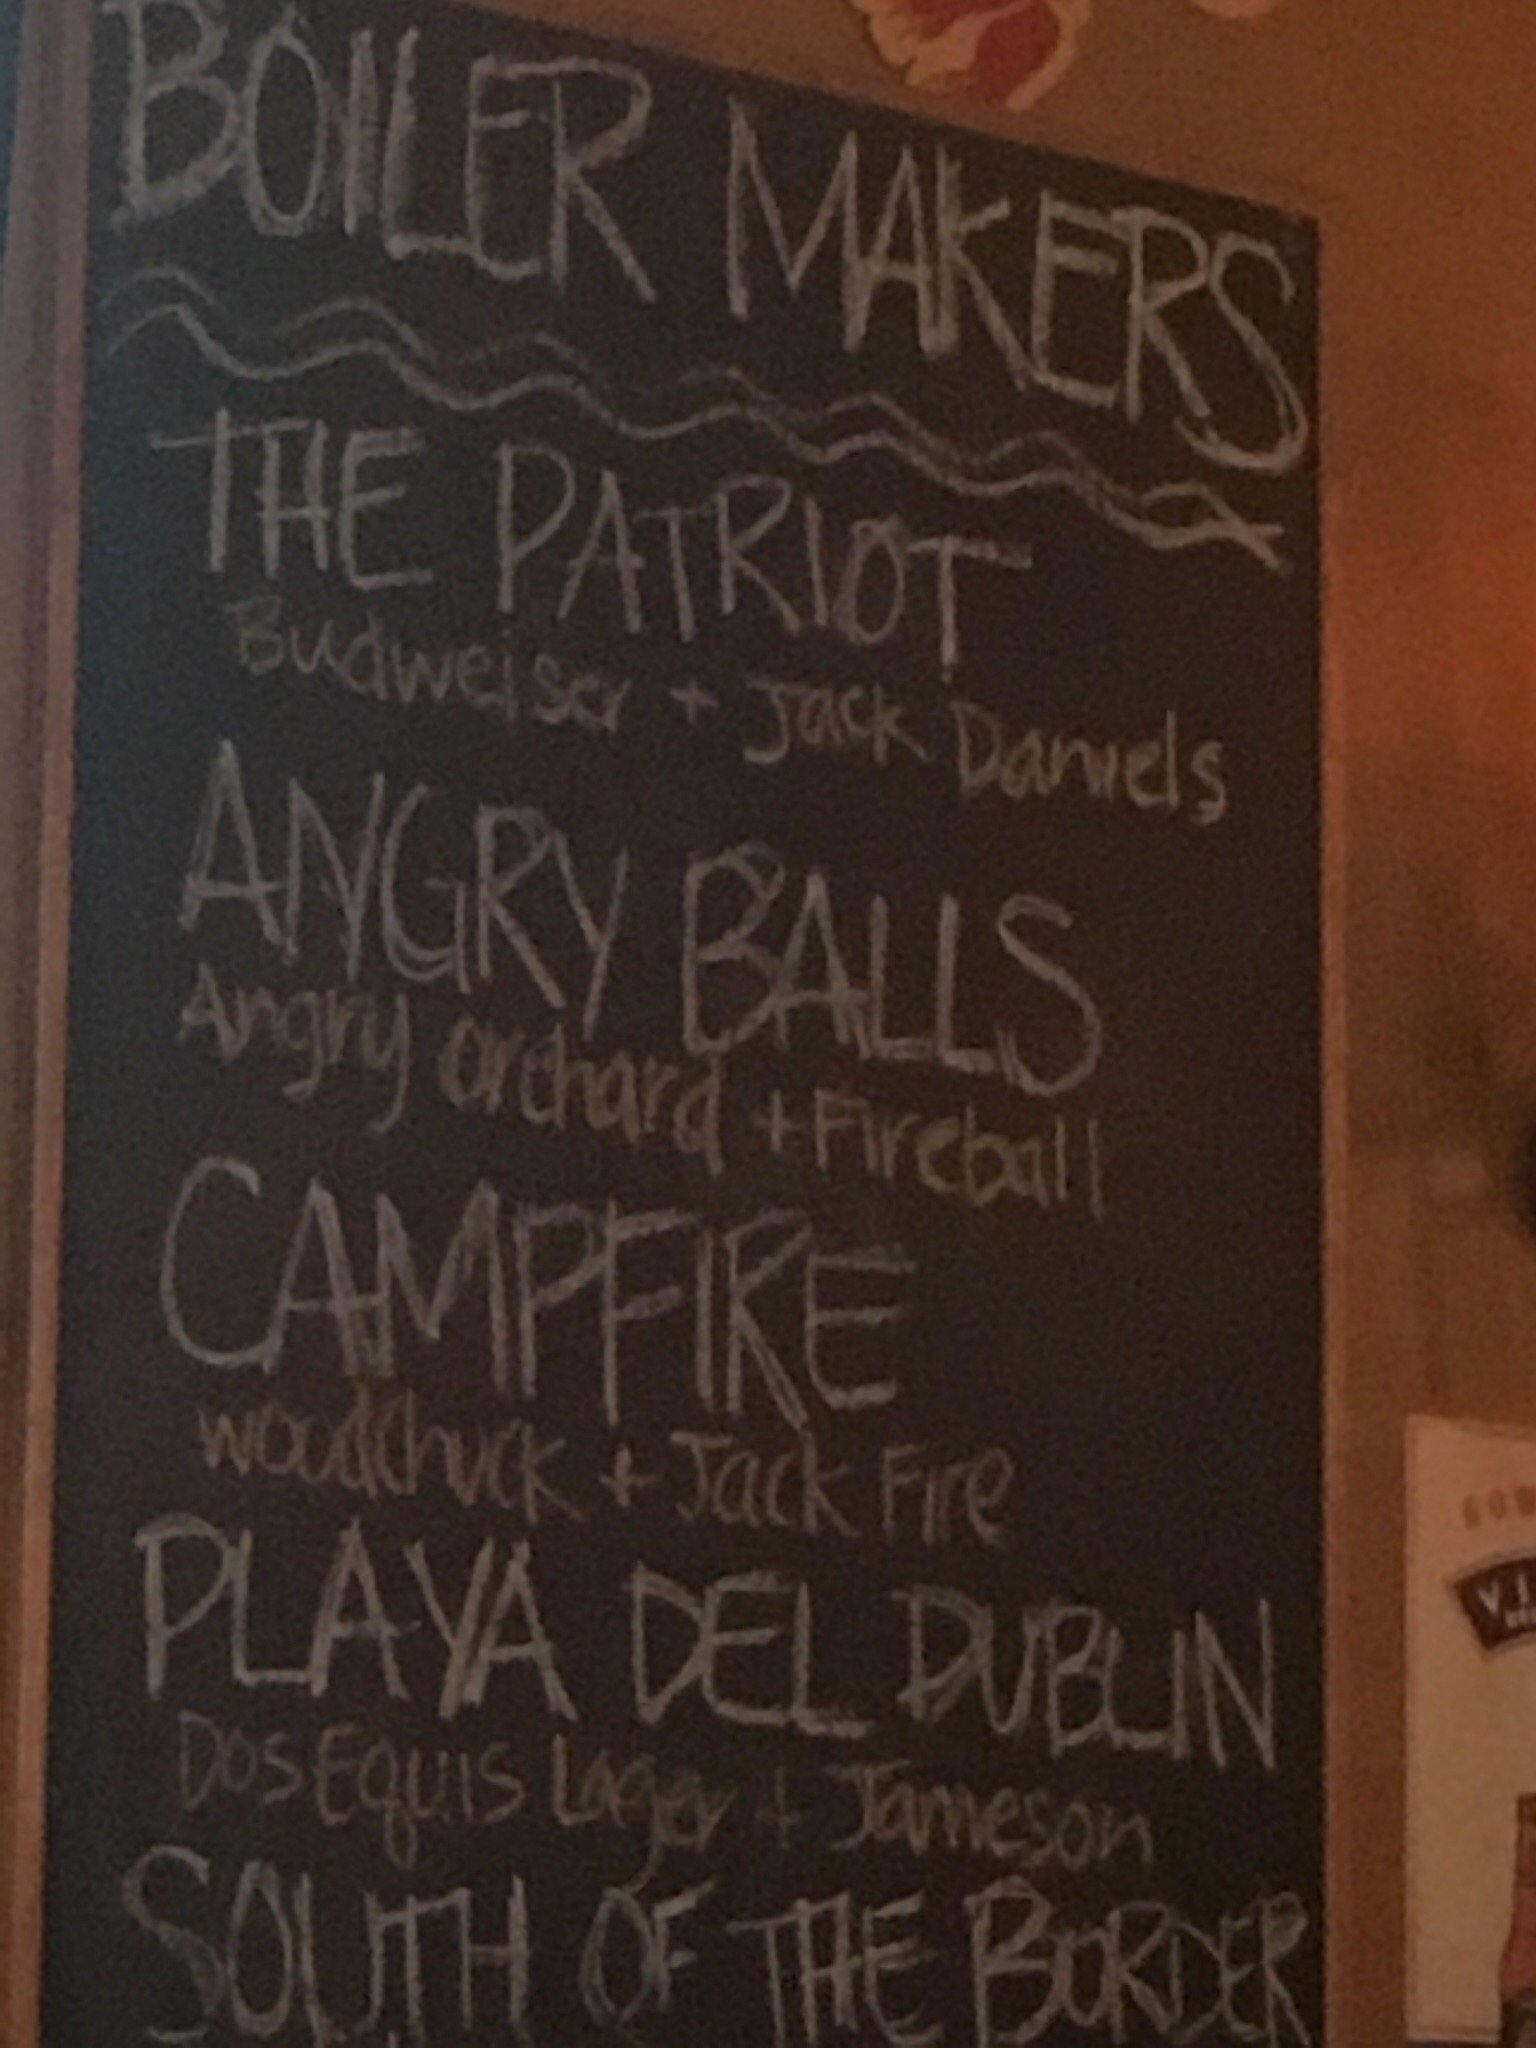 BOILER MAKERS
THE PATRIOT
Budweiser + Jack Daniels
ANGRY BALLS
Angry Orchard + Fireball
CAMPFIRE
woodchuck + Jack Fire
PLAYA DEL DUBLIN
Dos Equis Lager + Jameson
SOUTH OF THE BORDER